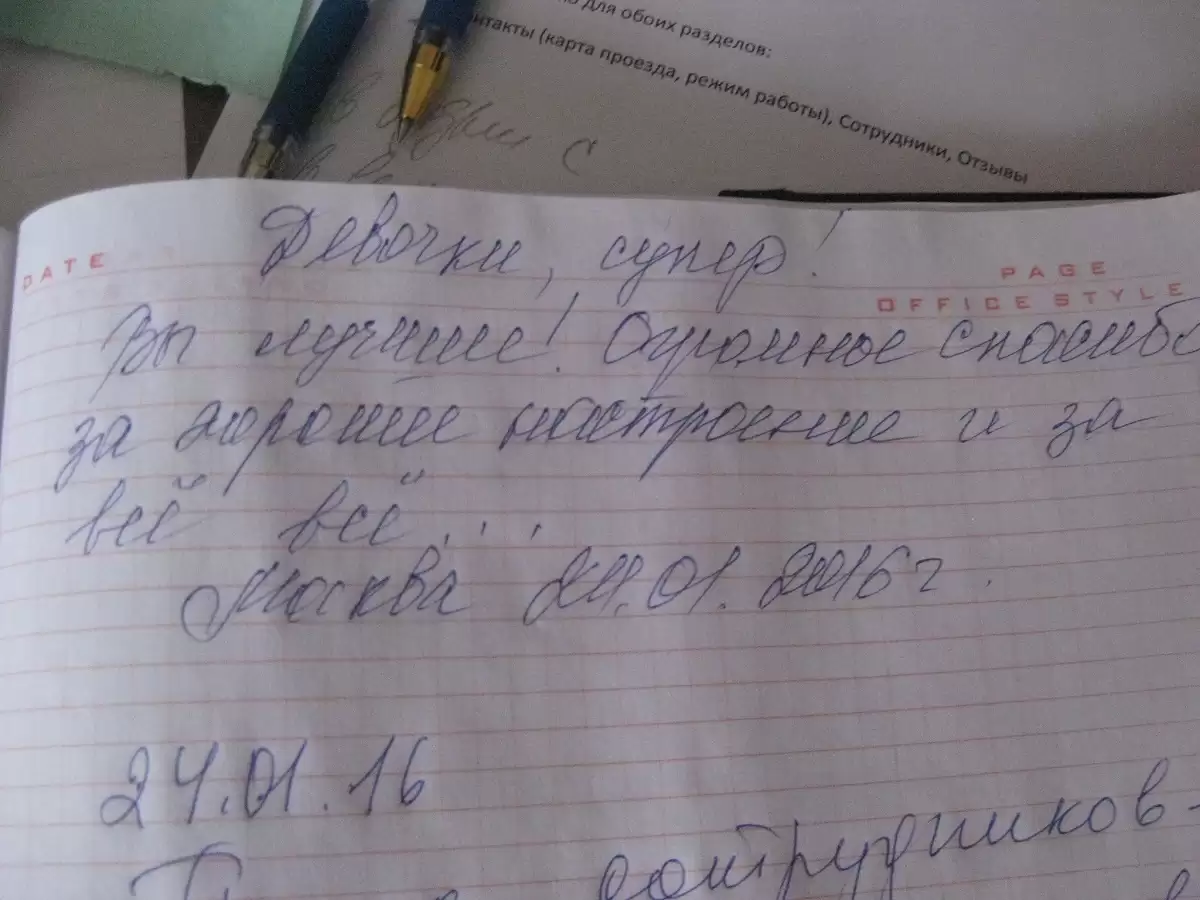 о для обоих разделов:
нтакты (карта проезда, режим работы), Сотрудники, Отзывы
с
DATE
Девочки, супер!
PAGE
OFFICE STYLE
Вы лучшие! Огромное спасибо
за хорошее настроение и за
всё всё...
Москва 24.01.2016 г.
24.01.16
сотрудников-